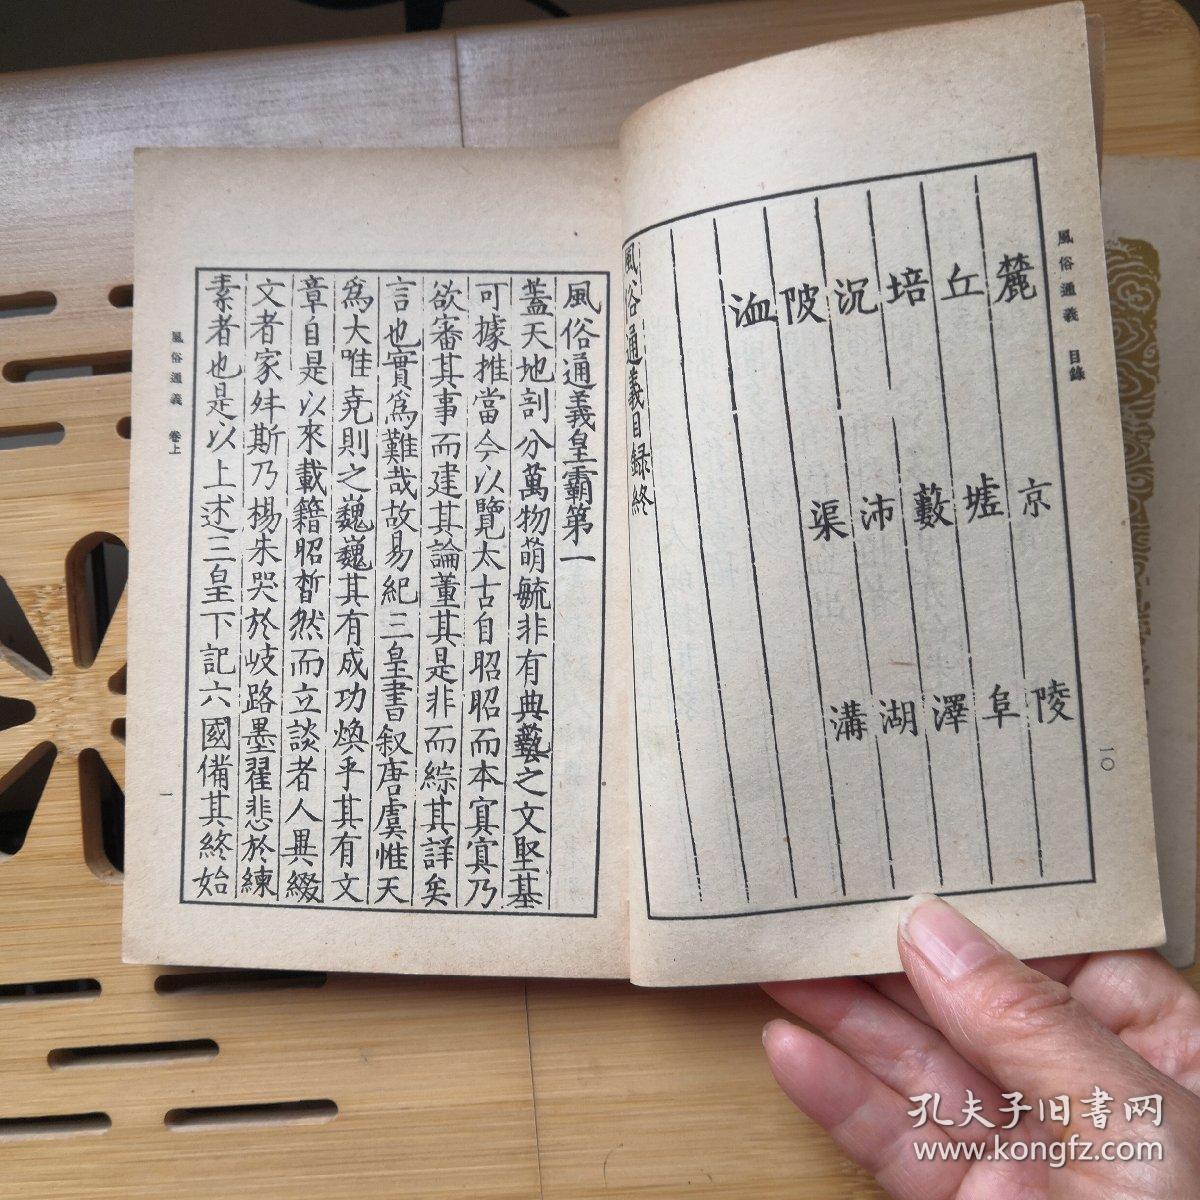 風俗通義 目錄
一〇
麓 京 陵
丘 墟 阜
培 藪 澤
沉 沛 湖
陂 渠 溝
洫
風俗通義目録終
風俗通義皇霸第一
蓋天地剖分萬物萌毓非有典藝之文堅基
可據推當今以覽太古自昭昭而本㝠㝠乃
欲審其事而建其論董其是非而綜其詳矣
言也實爲難哉故易紀三皇書叙唐虞惟天
爲大唯堯則之巍巍其有成功煥乎其有文
章自是以來載籍昭晢然而立談者人異綴
文者家舛斯乃楊朱哭於岐路墨翟悲於練
素者也是以上述三皇下記六國備其終始
風俗通義 卷上
一
孔夫子旧书网
www.kongfz.com